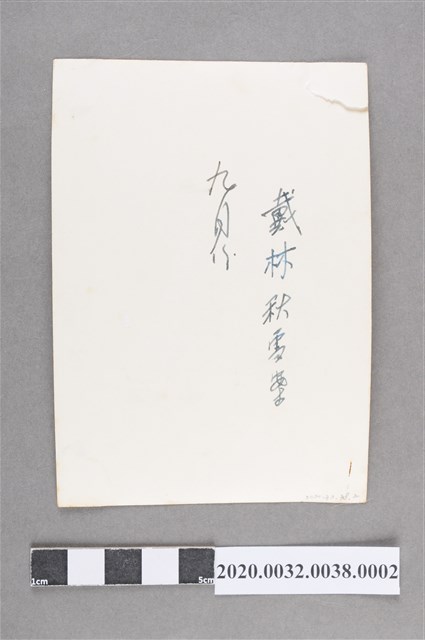 戴林秋雪
九月份
1cm
5cm
2020.0032.0038.0002